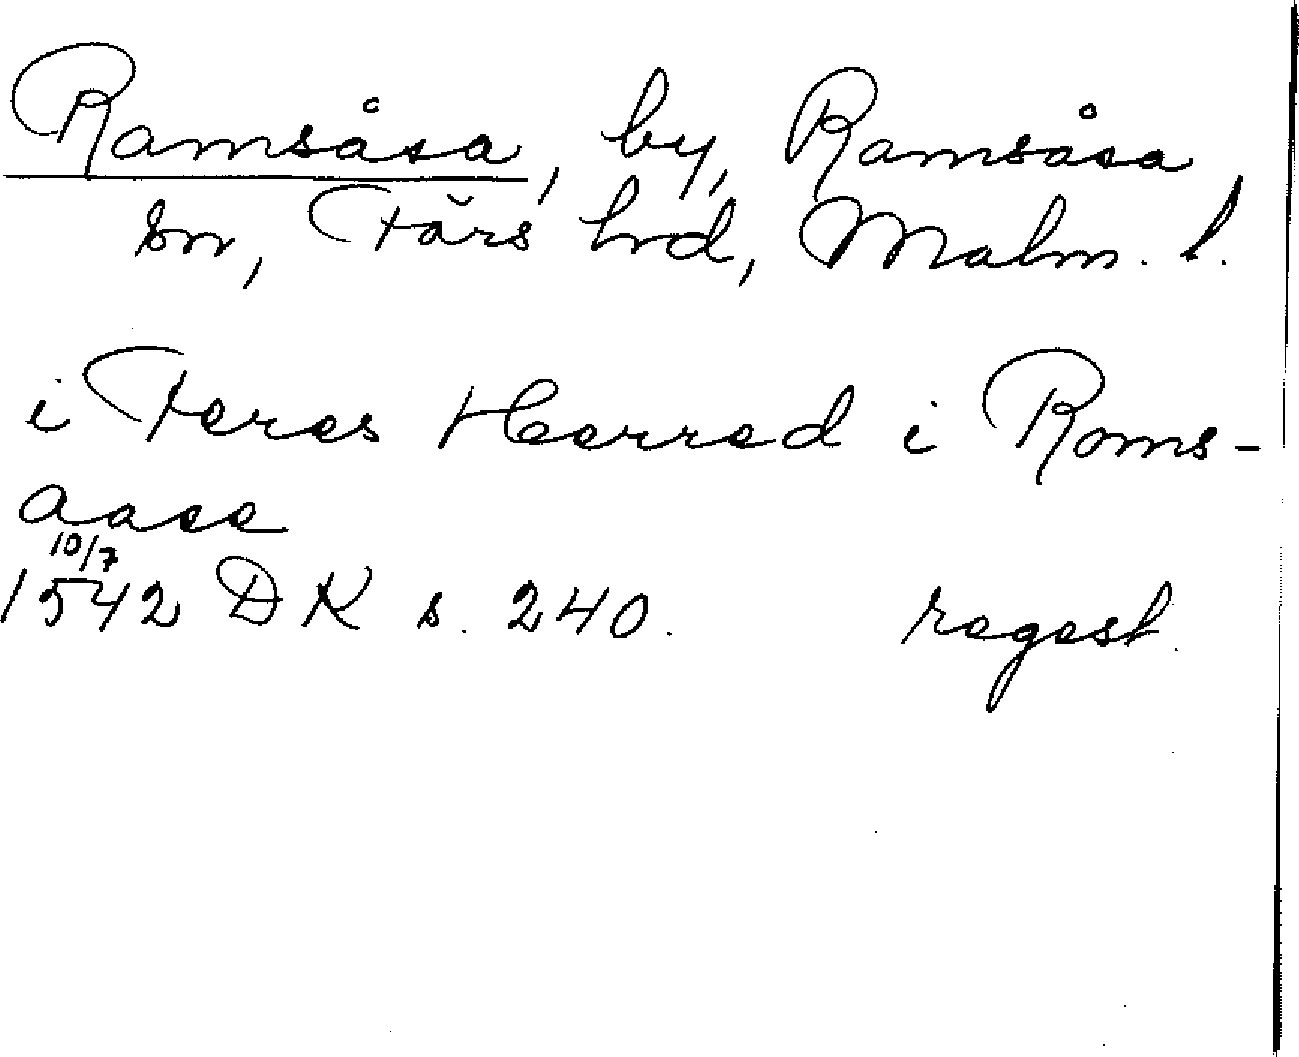 Ramsåsa, by, Ramsåsa
sn, Färs hrd, Malm. l.
i Feres Herred i Roms-
aase
10/7
1542 DK s. 240. regest.